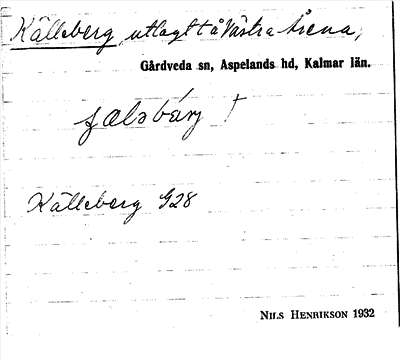 Källeberg, utlagt å Västra Årena,
Gårdveda sn, Aspelands hd, Kalmar län.
Källeberg G28
NILS HENRIKSON 1932